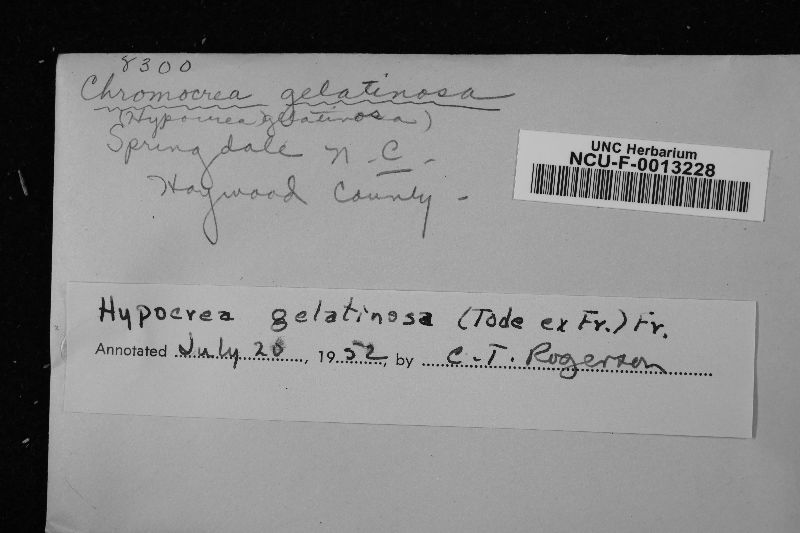 8300
Chromocrea gelatinosa
(Hypocrea gelatinosa)
Springdale N.C.-
Haywood County-
UNC Herbarium
NCU-F-0013228
Hypocrea gelatinosa (Tode ex Fr.) Fr.
Annotated July 20, 1952, by C.T. Rogerson